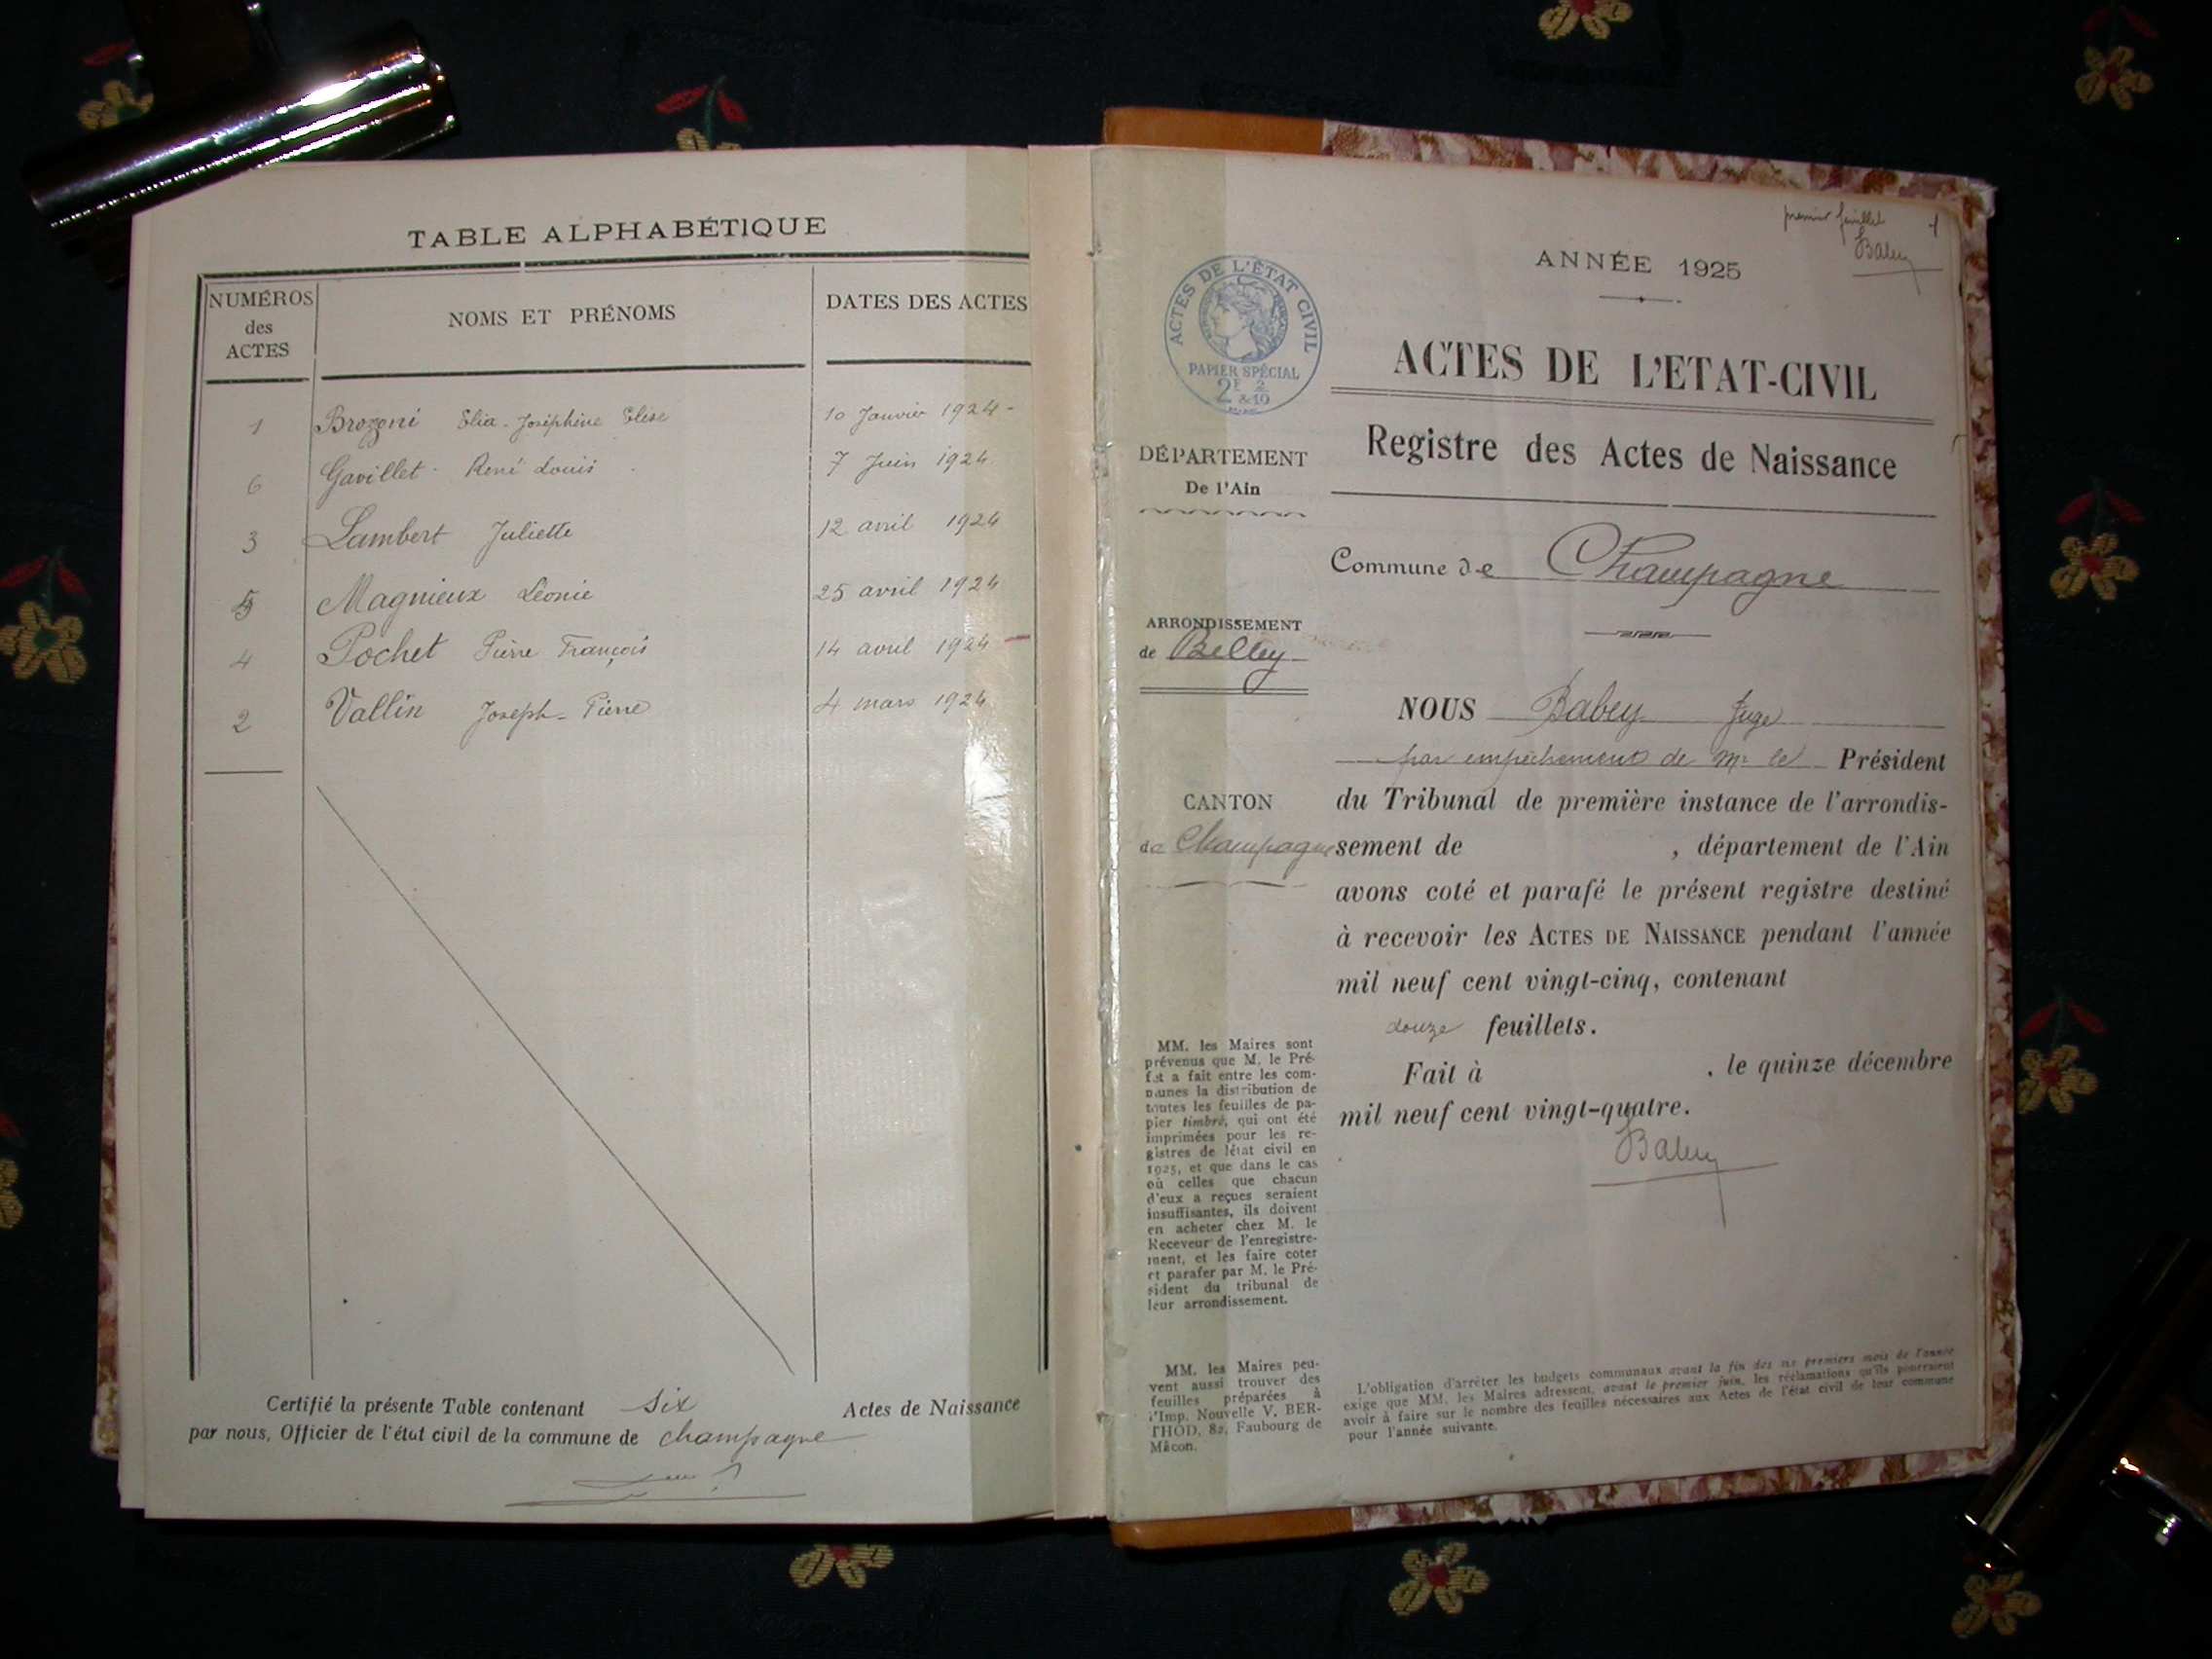 TABLE ALPHABÉTIQUE
NUMÉROS des ACTES
NOMS ET PRÉNOMS
DATES DES ACTES
1 Brozoni Elia-Joséphine Elise 10 Janvier 1924-
6 Gavillet - René Louis 7 Juin 1924
3 Lambert Juliette 12 avril 1924
5 Magnieux Léonie 25 avril 1924
4 Pochet Pierre François 14 avril 1924
2 Vallin Joseph-Pierre 4 mars 1924
Certifié la présente Table contenant six Actes de Naissance
par nous, Officier de l'état civil de la commune de champagne
premier feuillet 1
Babey
ANNÉE 1925
ACTES DE L'ÉTAT CIVIL
PAPIER SPÉCIAL
2F 2/10
ACTES DE L'ETAT-CIVIL
Registre des Actes de Naissance
DÉPARTEMENT
De l'Ain
Commune de Champagne
ARRONDISSEMENT
de Belley
CANTON
de Champagne
NOUS Babey Juge
par empêchement de Mr le Président
du Tribunal de première instance de l'arrondis-
sement de , département de l'Ain
avons coté et parafé le présent registre destiné
à recevoir les ACTES DE NAISSANCE pendant l'année
mil neuf cent vingt-cinq, contenant
douze feuillets.
Fait à , le quinze décembre
mil neuf cent vingt-quatre.
Babey
MM. les Maires sont
prévenus que M. le Pré-
fet a fait entre les com-
munes la distribution de
toutes les feuilles de pa-
pier timbré, qui ont été
imprimées pour les re-
gistres de l'état civil en
1925, et que dans le cas
où celles que chacun
d'eux a reçues seraient
insuffisantes, ils doivent
en acheter chez M. le
Receveur de l'enregistre-
ment, et les faire coter
et parafer par M. le Pré-
sident du tribunal de
leur arrondissement.
MM. les Maires peu-
vent aussi trouver des
feuilles préparées à
l'Imp. Nouvelle V. BER-
THOD, 82, Faubourg de
Mâcon.
L'obligation d'arrêter les budgets communaux avant la fin des six premiers mois de l'année
exige que MM. les Maires adressent, avant le premier juin, les réclamations qu'ils pourraient
avoir à faire sur le nombre des feuilles nécessaires aux Actes de l'état civil de leur commune
pour l'année suivante.